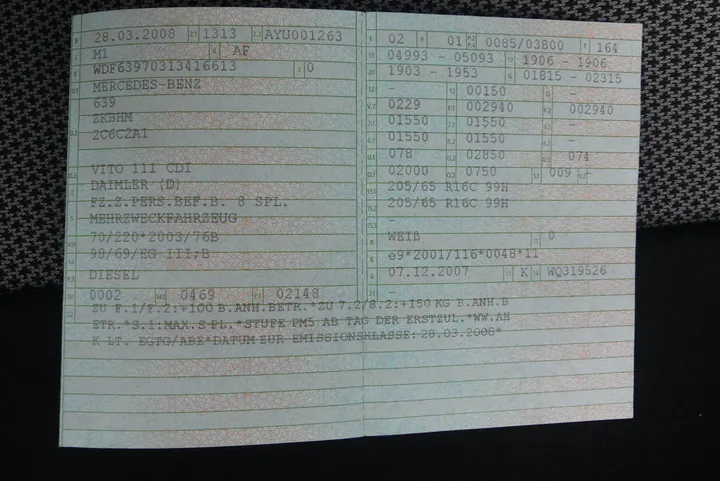 28.03.2008 1313 AYU001263
M1 AF
WDF63970313416613 0
MERCEDES-BENZ
639
ZKBHM
2C6C2A1
VITO 111 CDI
DAIMLER (D)
FZ.Z.PERS.BEF.B. 8 SPL.
MEHRZWECKFAHRZEUG
70/220*2003/76B
98/69/EG III;B
DIESEL
0002 0469 02148
02 01 0085/03800 164
04993 - 05093 1906 - 1906
1903 - 1953 01815 - 02315
- 00150 -
0229 002940 002940
01550 01550 -
01550 01550 -
078 02850 074
02000 0750 009 -
205/65 R16C 99H
205/65 R16C 99H
-
WEIß 0
e9*2001/116*0048*11
07.12.2007 K WQ319526
-
ZU F.1/F.2:+100 B.ANH.BETR.*ZU 7.2/8.2:+150 KG B.ANH.B
ETR.*S.1:MAX.S-PL.*STUFE PM5 AB TAG DER ERSTZUL.*WW.AH
K LT. EGTG/ABE*DATUM ZUR EMISSIONSKLASSE: 28.03.2008*